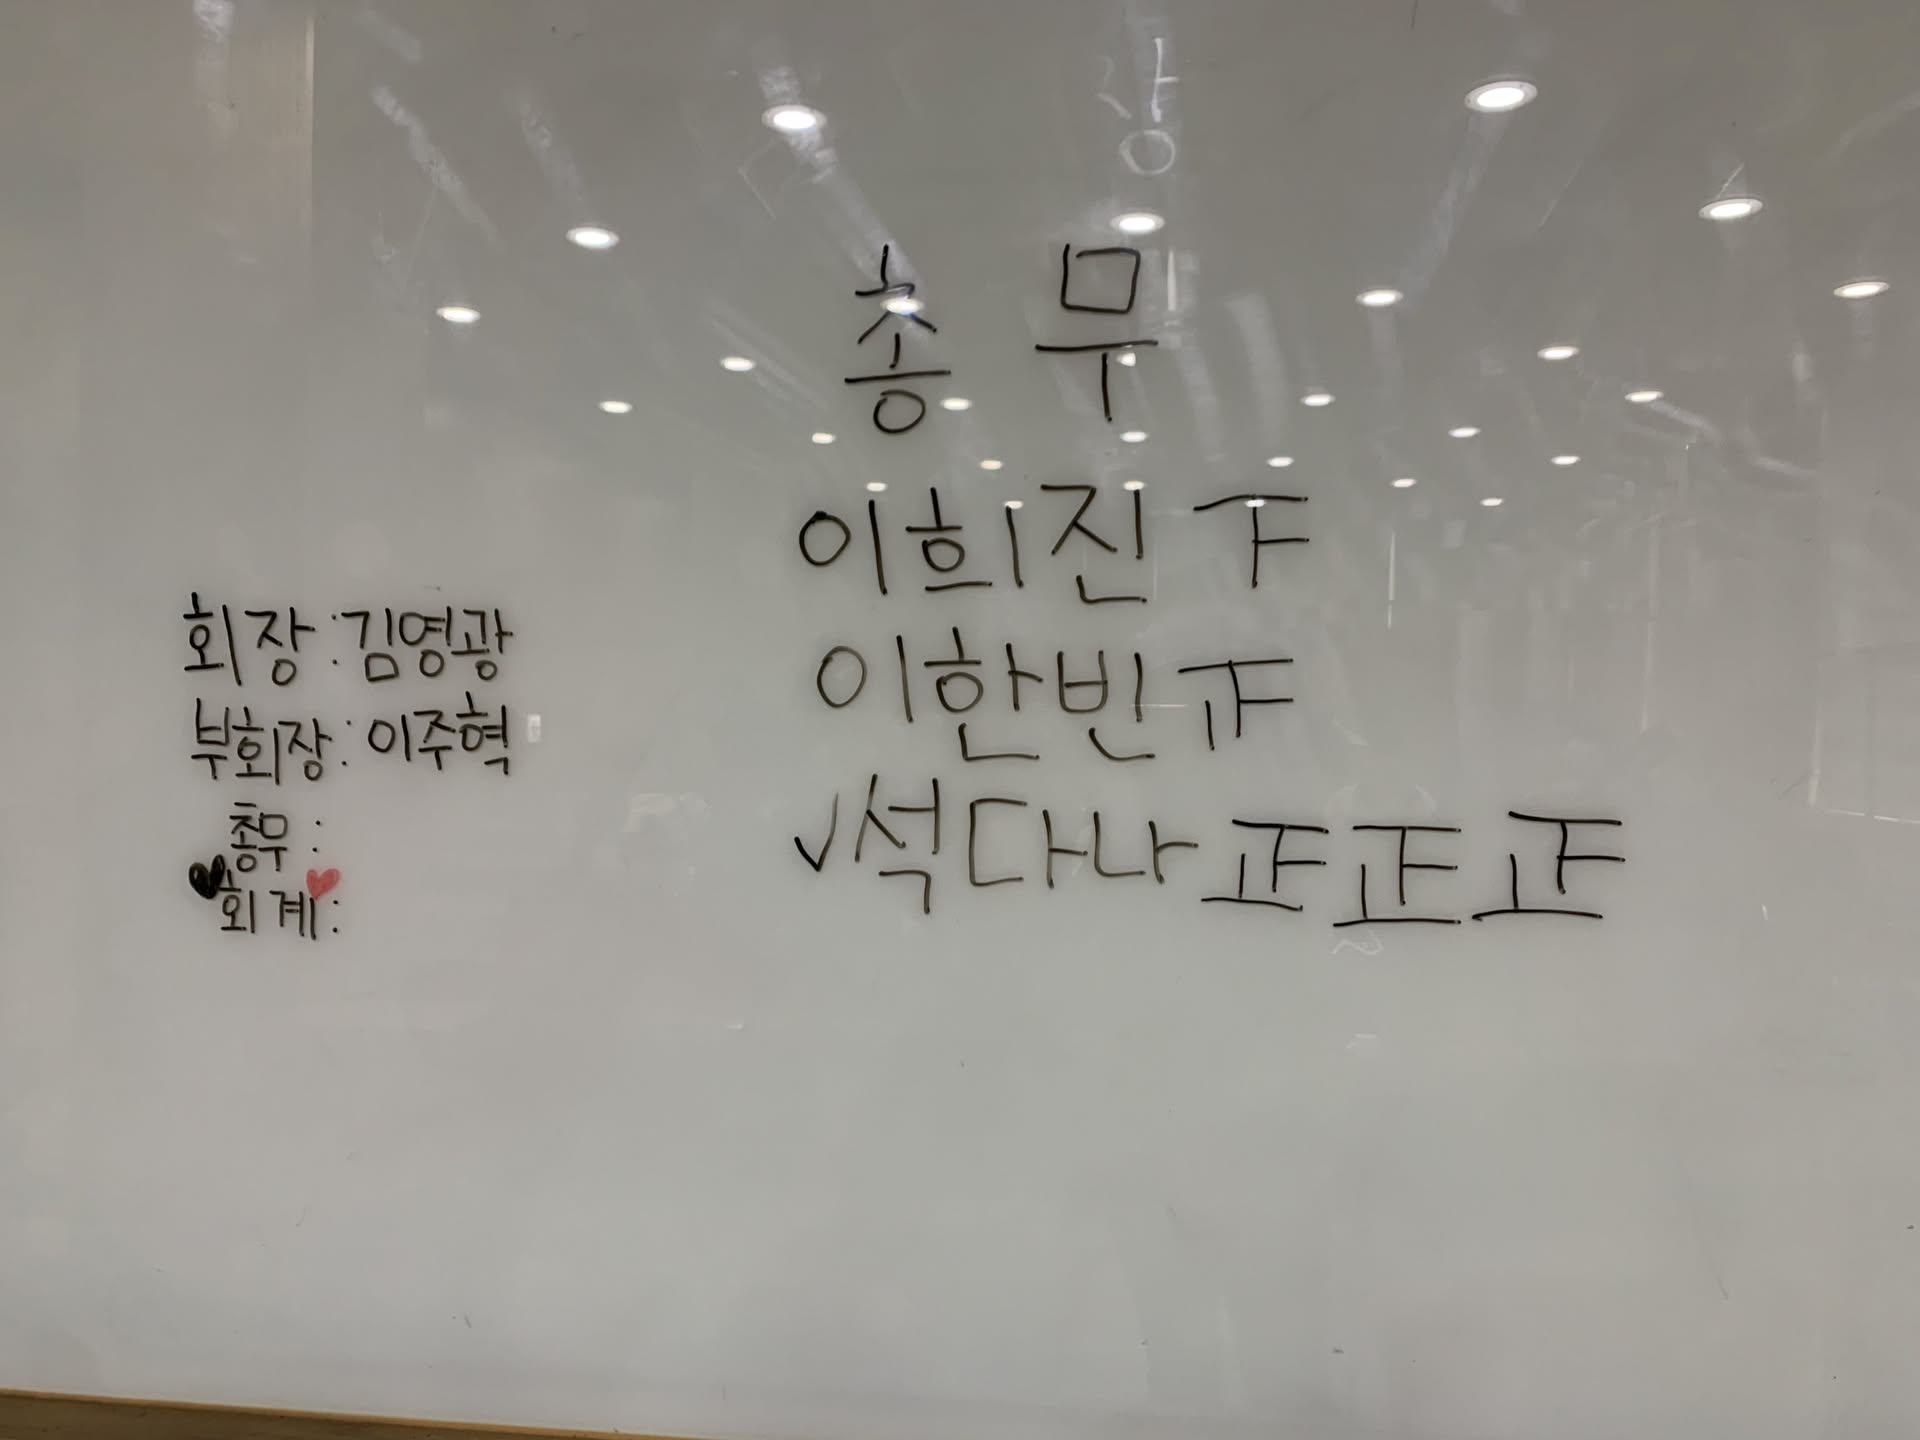 총 무
이희진 下
이한빈 正
✓석다나 正正正
회장: 김영광
부회장: 이주혁
총무:
회계: